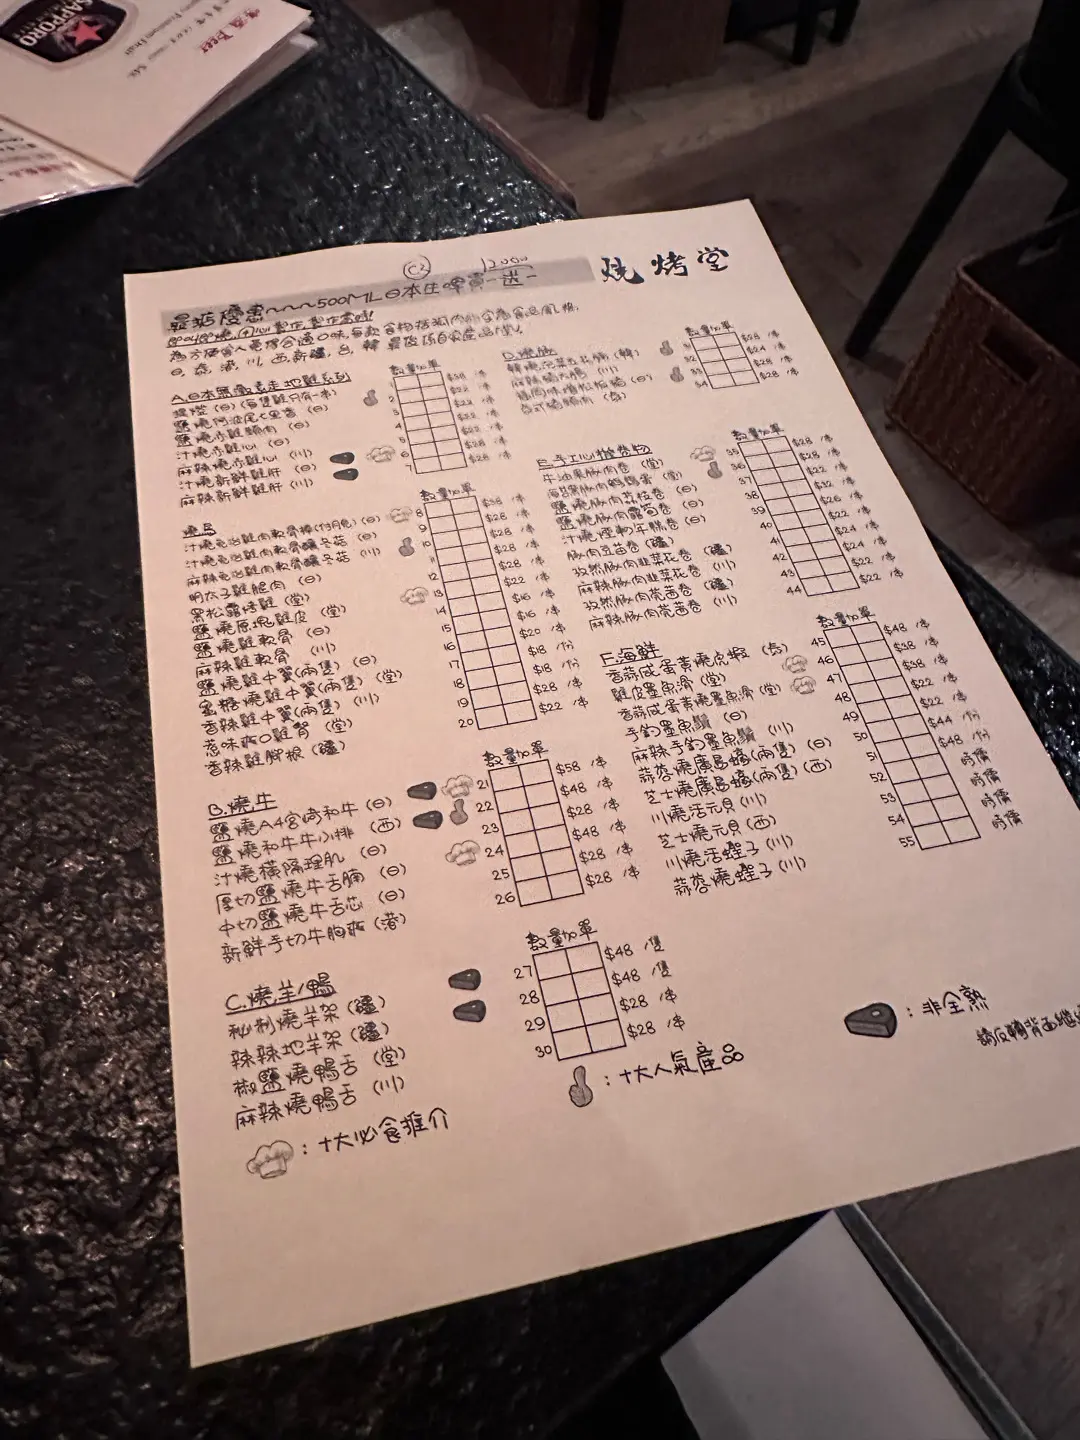 SAPPORO
Beer
C2
12000
燒烤堂
最搭優惠~~~500ML日本生啤買一送一
即叫即燒,用心製作,製作需時!
日, 泰, 港, 川, 西, 新疆, 台, 韓
A.日本無激素走地雞系列
數量加單
提燈 (日) (每隻雞只有一本)
鹽燒阿波尾七里香 (日)
鹽燒赤雞頸肉 (日)
汁燒赤雞心 (日)
麻辣燒赤雞心 (川)
汁燒新鮮雞肝 (日)
麻辣新鮮雞肝 (川)
1 $38 /本
2 $22 /本
3 $22 /本
4 $22 /本
5 $22 /本
6 $28 /本
7 $28 /本
燒鳥
數量加單
汁燒免治雞肉軟骨棒(付月見) (日)
汁燒免治雞肉軟骨釀冬菇 (日)
麻辣免治雞肉軟骨釀冬菇 (川)
明太子雞腿肉 (日)
黑松露燒雞 (堂)
鹽燒原塊雞皮 (堂)
鹽燒雞軟骨 (日)
麻辣雞軟骨 (川)
鹽燒雞中翼(兩隻) (日)
蜜糖燒雞中翼(兩隻) (堂)
香辣雞中翼(兩隻) (川)
惹味爽口雞腎 (堂)
香辣雞腳根 (疆)
8 $38 /本
9 $28 /本
10 $28 /本
11 $28 /本
12 $28 /本
13 $22 /本
14 $16 /本
15 $16 /本
16 $20 /本
17 $18 /份
18 $18 /份
19 $28 /本
20 $22 /本
B.燒牛
數量加單
鹽燒A4宮崎和牛 (日)
鹽燒和牛牛小排 (西)
汁燒橫隔理肌 (日)
厚切鹽燒牛舌腩 (日)
中切鹽燒牛舌芯 (日)
新鮮手切牛胸爽 (港)
21 $58 /本
22 $48 /本
23 $28 /本
24 $48 /本
25 $28 /本
26 $28 /本
C.燒羊/鴨
數量加單
秘制燒羊架 (疆)
辣辣地羊架 (疆)
椒鹽燒鴨舌 (堂)
麻辣燒鴨舌 (川)
27 $48 /隻
28 $48 /隻
29 $28 /本
30 $28 /本
D.燒豚
數量加單
31 $28 /本
32 $24 /本
33 $28 /本
34 $28 /本
E.手工心機卷物
數量加單
牛油果豚肉卷 (堂)
鹽燒豚肉荔枝卷 (日)
鹽燒豚肉露筍卷 (日)
汁燒煙軔年糕卷 (日)
豚肉豆苗卷 (疆)
孜然豚肉韮菜花卷 (疆)
麻辣豚肉韮菜花卷 (川)
孜然豚肉茼茜卷 (疆)
麻辣豚肉茼茜卷 (川)
35 $28 /本
36 $28 /本
37 $22 /本
38 $32 /本
39 $26 /本
40 $22 /本
41 $24 /本
42 $24 /本
43 $22 /本
44 $22 /本
F.海鮮
數量加單
香蒜咸蛋黃燒虎蝦 (泰)
雞皮墨魚滑 (堂)
香蒜咸蛋黃燒墨魚滑 (堂)
手釣墨魚鬚 (日)
麻辣手釣墨魚鬚 (川)
蒜蓉燒廣島蠔(兩隻) (日)
芝士燒廣島蠔(兩隻) (西)
川燒活元貝 (川)
芝士燒元貝 (西)
川燒活蟶子 (川)
蒜蓉燒蟶子 (川)
45 $48 /本
46 $38 /本
47 $38 /本
48 $22 /本
49 $22 /本
50 $44 /份
51 $48 /份
52 時價
53 時價
54 時價
55 時價
: 十大必食推介
: 十大人氣產品
: 非全熟